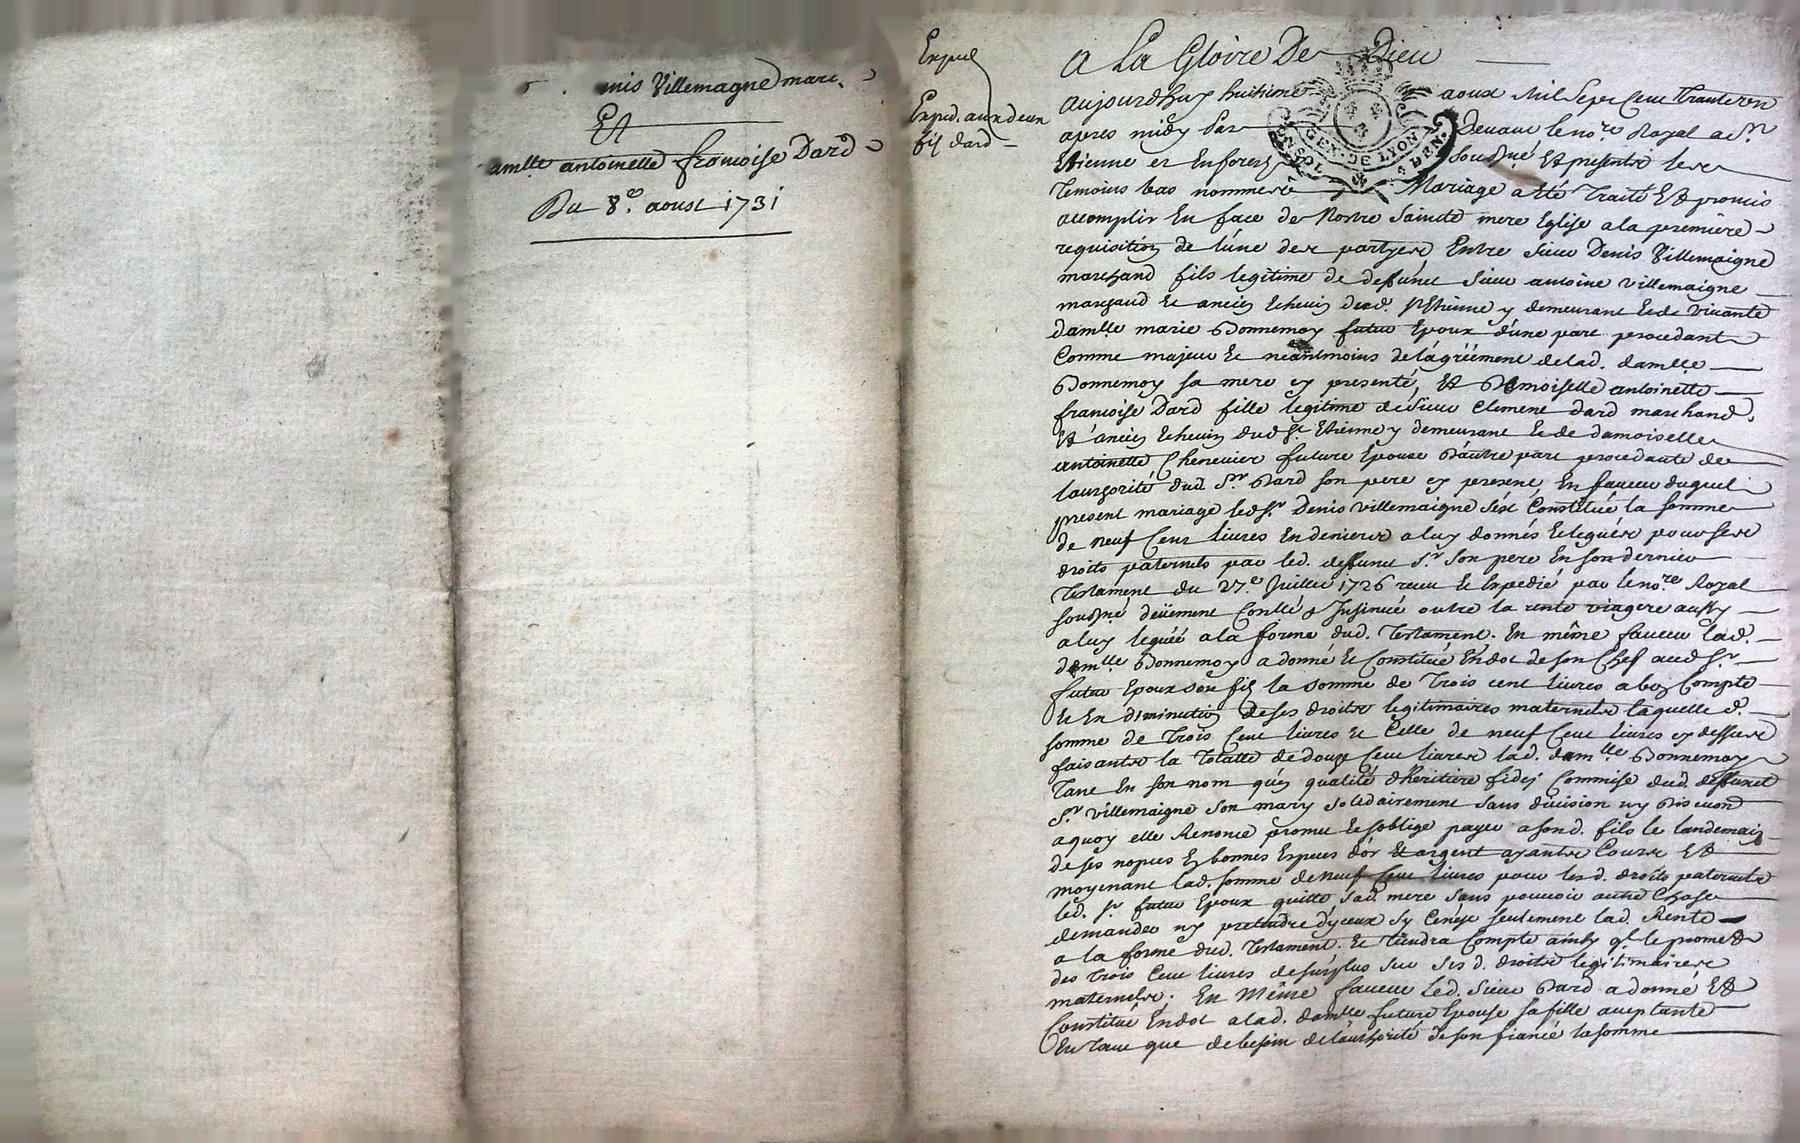 nis Villemagne marc.
Et
damlle antoinette francoise Dard
Du 8e. aoust 1731
Expd. aux deux
fil dard
A La Gloire De Dieu
aujourdhuy huitieme aoust Mil Sept Cent Trente un
apres midy Par Devant le nore. Royal a St
Etienne en Forest soussigné Et presents les
temoins bas nommés Mariage a été Traité Et promis
accomplir En face de Nostre Sainte mere Eglise a la premiere
requisition de lúne des partyes Entre Sieur Denis Villemaigne
marchand fils legitime de deffúnct Sieur antoine villemaigne
marchand et ancien Echevin dud. St Etienne y demeurant et de vivante
damlle marie Bonnemoy futur Epoux d'une part procedant
Comme majeur et néantmoins de lágréement de lad. damlle
Bonnemoy sa mere cy presenté, Et Demoiselle antoinette
francoise Dard fille legitime de Sieur Clement dard marchand
Et áncien Echevin dud St. Etienne y demeurant et de damoiselle
antoinette Chenevier future Epouse dautre part procedante de
lauthorité dud. Sr. Dard son pere cy present, En faveur duquel
present mariage led Sr. Denis villemaigne sést Constitué la somme
de neuf Cent livres En deniers a luy donnés et legués pour ses
droits paternels par led. deffunct Sr. son pere En son dernier
Testament du 27e. Juillet 1726 receu et Expedié par le nore. Royal
soussigné deüement Conllé & Insinué outre la rente viagere aussy
a luy leguée a la forme dud. Testament. En même faveur lad.
demlle Bonnemoy a donné et Constitué En dot de son Chef aud Sr.
futur Epoux son fil la somme de trois cent livres a bon Compte
et En diminution de ses droits legitimaires maternels laquelle d.
somme de trois Cent livres et Celle de neuf Cent livres cy dessus
faisants la Totalle de douze Cent livres lad. demlle Bonnemoy
Tant En son nom qu'en qualité d'héritiere fidej Commise dud. deffunct
Sr. villemaigne son mary solidairement sans division ny discution
a quoy elle Renonce promet et soblige payer a sond. fils le landemain
de ses nopces En bonnes Especes dór Et argent ayants Cours Et
moyenant lad. somme de neuf Cent livres pour lesd. droits paternels
led. Sr. futur Epoux quitte sad. mere sans pouvoir autre Chose
demander ny pretendre d'yceux sy Cenést seulement lad. Rente
a la forme dud. Testament. et tiendra Compte ainsy ql. le promet
des trois Cent livres de surplus sur ses d. droits legitimaires
maternels. En Même faveur led. Sieur Dard a donné Et
Constitué En dot a lad. damlle future Epouse sa fille aceptante
En tant que de besoin de lauthorité de son fiancé la somme